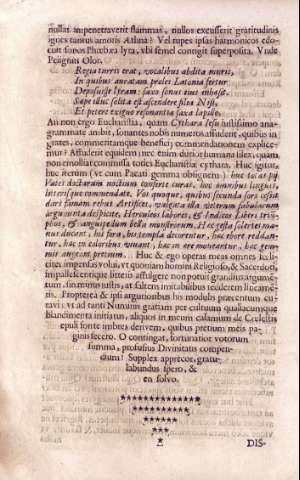 nullas impenetraverit flammas, nullos excusserit gratitudinis
ignes tantus amoris Æthna? Vel rupes ipsas harmonicos edo-
cuit sonos Phœbæa lyra, ubi semel contigit superposita. Unde
Pelignus Olor.
Regia turris erat, vocalibus abdita muris,
In quibus auratam proles Latonia fertur
Deposuisse lyram: saxo sonus eius inhæsit.
Sæpe illuc solita est ascendere filia Nisi,
Et petere exiguo resonantia saxa lapillo.
An non ergo Eucharistia, quam Cythara Iesu suavissimo ana-
grammate ambit, sonantes nobis numeros affuderit, quibus in
grates, commentarique beneficij commendationem explice-
mur? Affuderit equidem; nec enim durior humana silex, quam
non emolliat commissa toties Eucharistiæ cythara. Huc igitur,
huc iterum (ut cum Pacati gemma obsignem) huc totas pij
Vates doctarum noctium conferte curas, hoc omnibus linguis,
literisque commendate. Vos quoque, quibus secunda sors cessit
dari famam rebus Artifices, vulgata illa veterum fabularum
argumenta despicite, Herculeos labores, & Indicos Liberi trium-
phos, & anguipedum bella monstrorum. Hæc gesta solertes ma-
nus ducent, his fora, his templa decorentur, hæc ebore reddan-
tur, hæc in coloribus vivant, hæc in ære moveantur, hæc gem-
mis augeant pretium. Huc & ego operas meas omnes
impensas volui, ut quoniam homini Religioso, & Sacerdoti,
impallescentique litteris affulgere non potuit gratulius argumen-
tum, sin munus iustius, at saltem imitabilibus
Propterea & ipsi argutioribus his modulis præcentum cu-
ravi: ut ad tanti Numinis gratiam per cultuum qualiumcunque
blandimenta initiatus, aliquos in meum calamum de Cœlestis
epuli fonte imbres derivem, quibus pretium meis pa-
ginis fecero. O contingat, fortunatior votorum
summa, profusus Divinitatis compen-
dium! Supplex apprecor, gratu-
labundus spero, &
en solvo.
DIS-